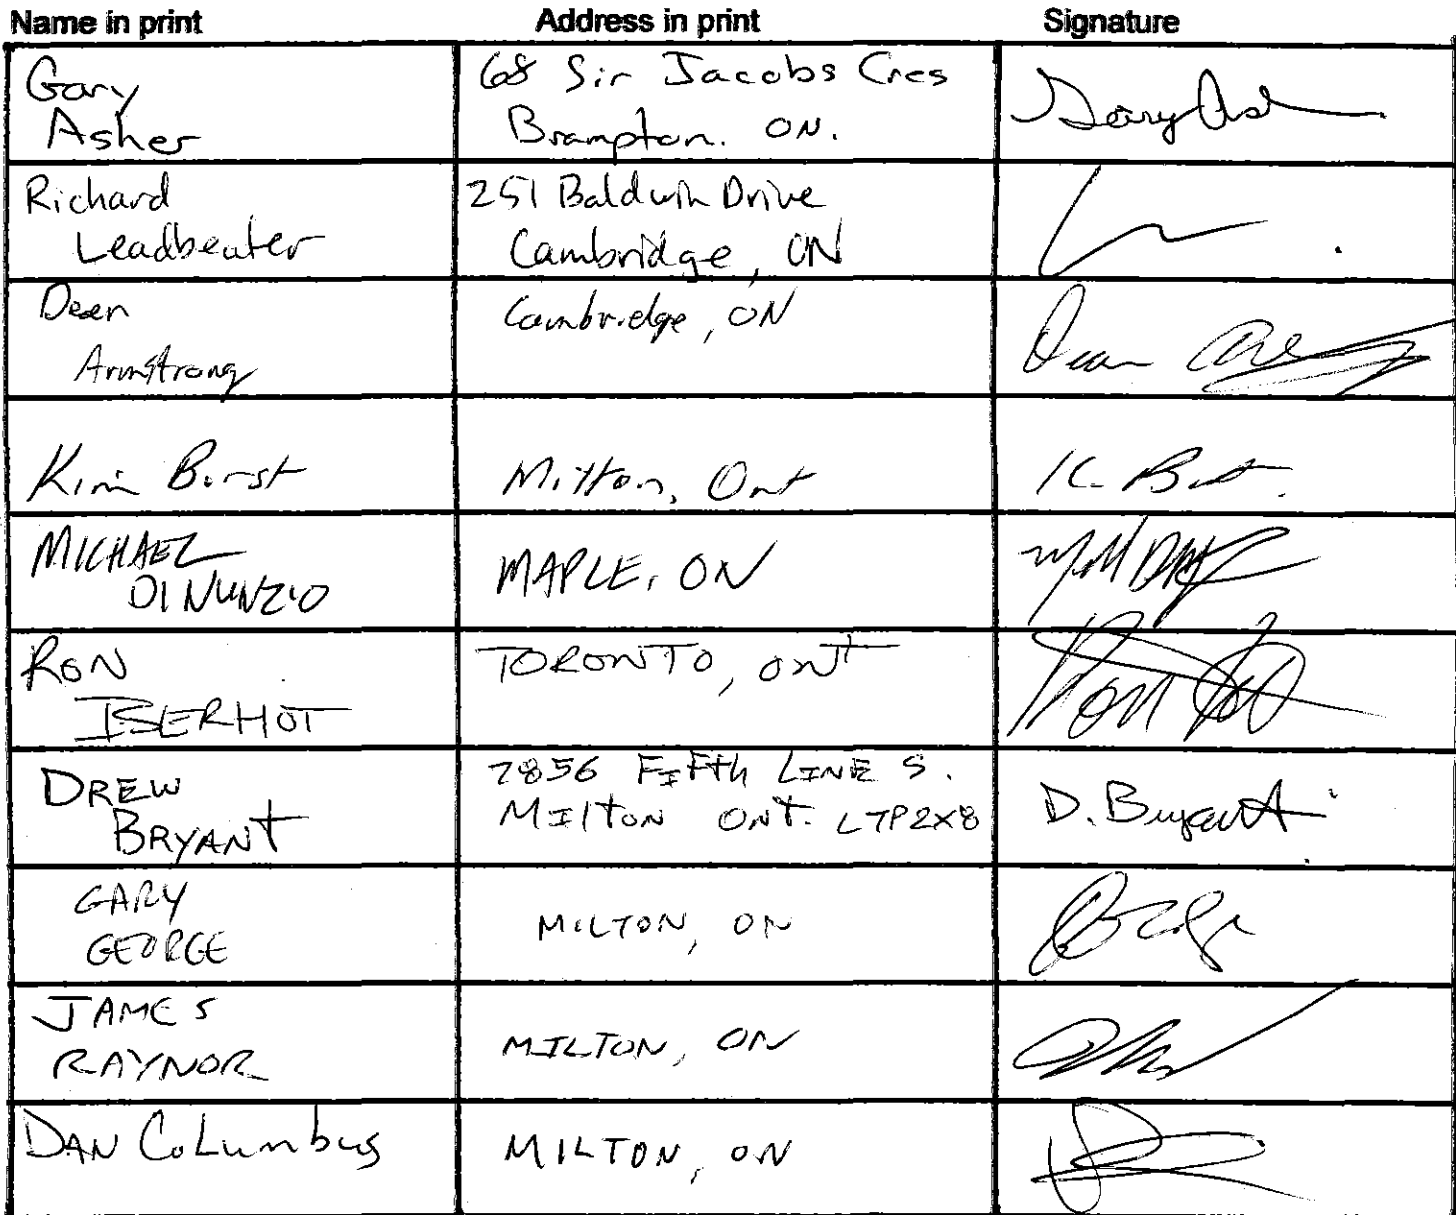 Name in print Address in print Signature
Gary
Asher
68 Sir Jacobs Cres
Brampton. ON.
Gary Ash
Richard
Leadbeater
251 Baldwin Drive
Cambridge, ON
Dean
Armstrong
Cambridge, ON
Dean
Kim Borst
Milton, Ont
K. B
MICHAEL
DI NUNZIO
MAPLE, ON
RON
ISERHOT
TORONTO, ONT
Ron
DREW
BRYANT
7856 FIFTH LINE S.
MILTON ONT. L7P2X8
D. Bryant
GARY
GEORGE
MILTON, ON
JAMES
RAYNOR
MILTON, ON
DAN COLumbus
MILTON, ON